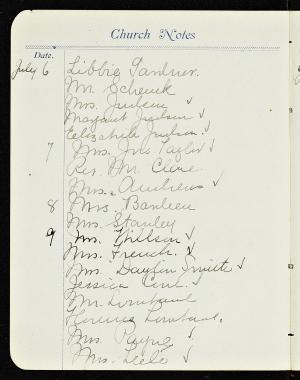 Church Notes
Date.
July 6 Libbie Gardner.
Mr. Schenck
Mrs. Judson ✓
Margaret Judson ✓
Elizabeth Judson ✓
7 Mrs. Jno. Taylor ✓
Rev. Mr. Cline
Mrs. Andrews ✓
8 Mrs
Mrs. Stanley
9 Mrs. Willson ✓
Mrs. French. ✓
Mrs. Smith ✓
Jessica ✓
Mr.
Florence
Mrs. Payne ✓
Mrs. Seele ✓